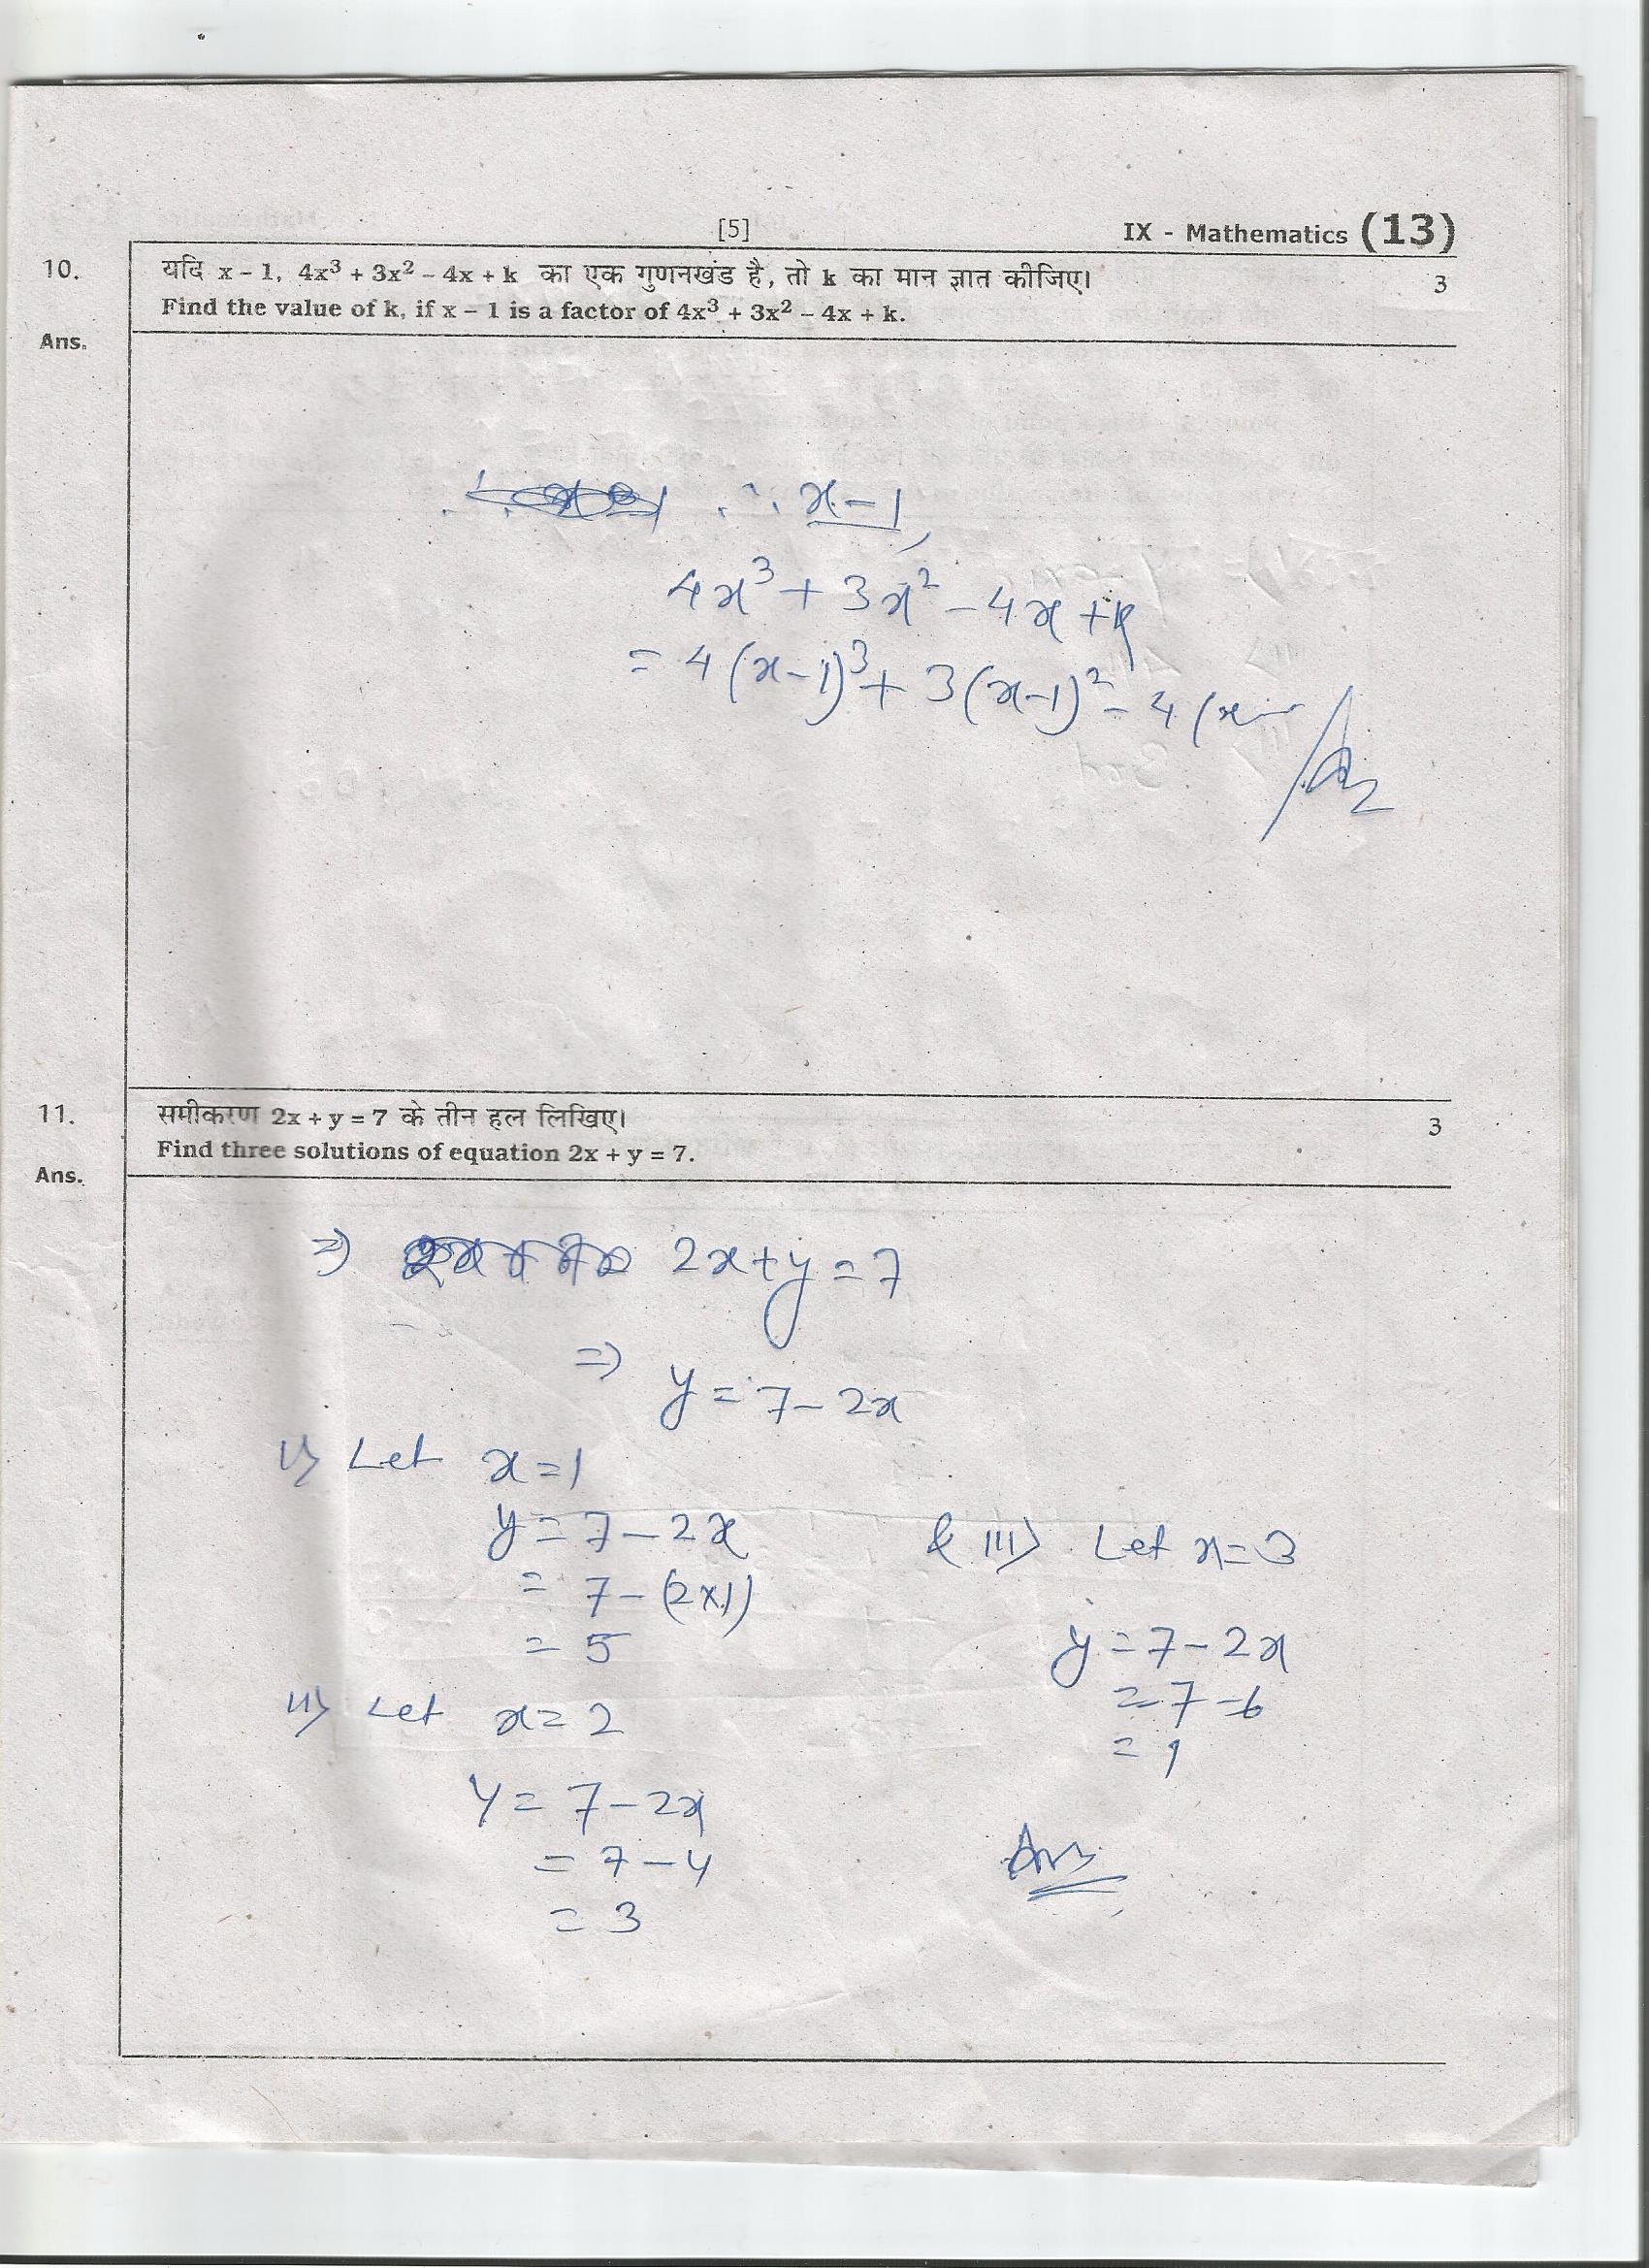 [5]
IX - Mathematics (13)
10. यदि x – 1, 4x³ + 3x² – 4x + k का एक गुणनखंड है, तो k का मान ज्ञात कीजिए। 3
Find the value of k, if x – 1 is a factor of 4x³ + 3x² – 4x + k.
Ans.
∴ x – 1,
4x³ + 3x² – 4x + k
= 4(x-1)³ + 3(x-1)² – 4(x
11. समीकरण 2x + y = 7 के तीन हल लिखिए। 3
Find three solutions of equation 2x + y = 7.
Ans.
⇒ 2x + y = 7
⇒ y = 7 – 2x
i) Let x = 1
y = 7 – 2x
= 7 – (2×1)
= 5
ii) Let x = 2
y = 7 – 2x
= 7 – 4
= 3
& iii) Let x = 3
y = 7 – 2x
= 7 – 6
= 1
Ans